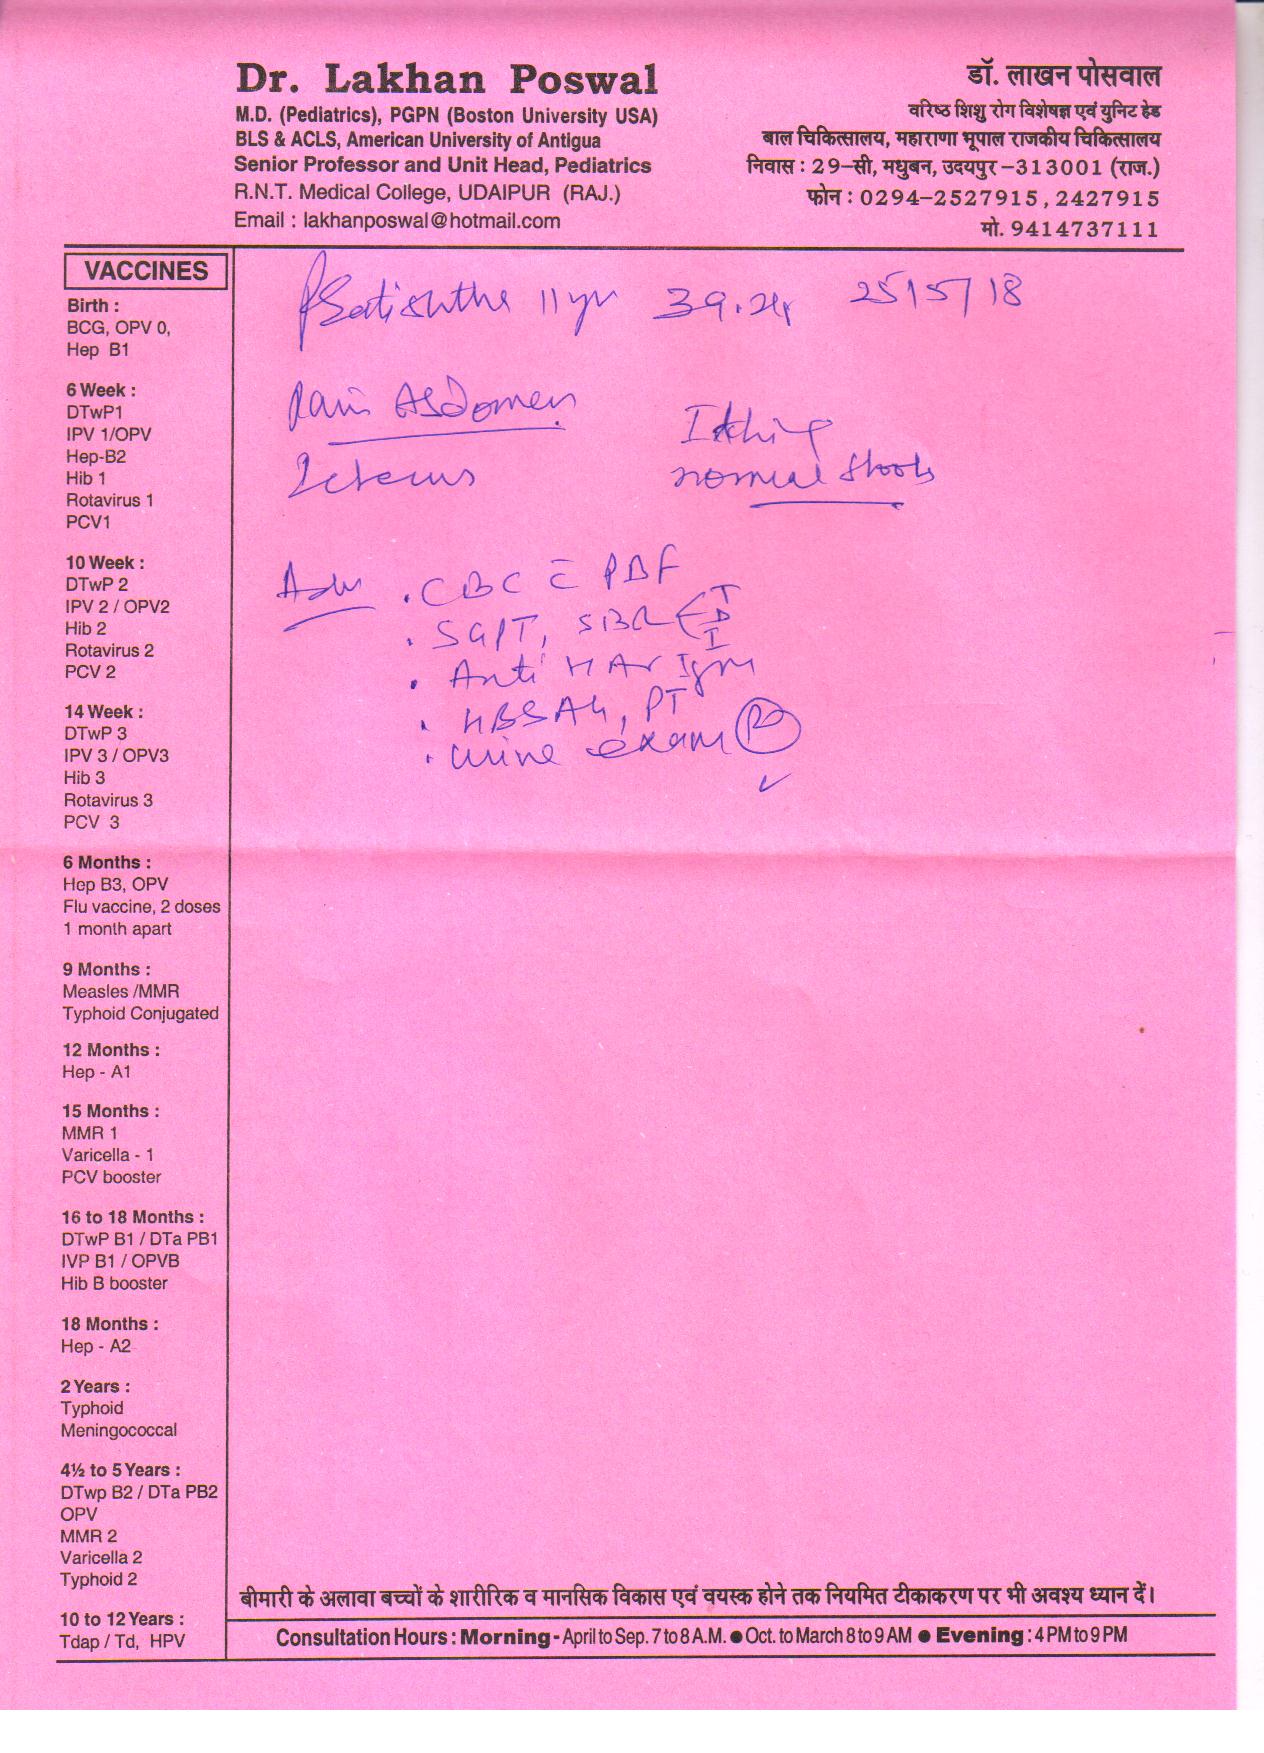 Dr. Lakhan Poswal
M.D. (Pediatrics), PGPN (Boston University USA)
BLS & ACLS, American University of Antigua
Senior Professor and Unit Head, Pediatrics
R.N.T. Medical College, UDAIPUR (RAJ.)
Email : lakhanposwal@hotmail.com
डॉ. लाखन पोसवाल
वरिष्ठ शिशु रोग विशेषज्ञ एवं युनिट हेड
बाल चिकित्सालय, महाराणा भूपाल राजकीय चिकित्सालय
निवास : 29-सी, मधुबन, उदयपुर-313001 (राज.)
फोन : 0294-2527915, 2427915
मो. 9414737111
VACCINES
Birth :
BCG, OPV 0,
Hep B1
6 Week :
DTwP1
IPV 1/OPV
Hep-B2
Hib 1
Rotavirus 1
PCV1
10 Week :
DTwP 2
IPV 2 / OPV2
Hib 2
Rotavirus 2
PCV 2
14 Week :
DTwP 3
IPV 3 / OPV3
Hib 3
Rotavirus 3
PCV 3
6 Months :
Hep B3, OPV
Flu vaccine, 2 doses
1 month apart
9 Months :
Measles /MMR
Typhoid Conjugated
12 Months :
Hep - A1
15 Months :
MMR 1
Varicella - 1
PCV booster
16 to 18 Months :
DTwP B1 / DTa PB1
IVP B1 / OPVB
Hib B booster
18 Months :
Hep - A2
2 Years :
Typhoid
Meningococcal
4½ to 5 Years :
DTwp B2 / DTa PB2
OPV
MMR 2
Varicella 2
Typhoid 2
10 to 12 Years :
Tdap / Td, HPV
11 yr 25/5/18
Pain Abdomen Itching
Icterus normal stools
Adv . CBC c̄ PBF
. SGPT, SBR T D I
. Anti HAV Igm
. HBSAG, PT
. urine exam R
बीमारी के अलावा बच्चों के शारीरिक व मानसिक विकास एवं वयस्क होने तक नियमित टीकाकरण पर भी अवश्य ध्यान दें।
Consultation Hours : Morning - April to Sep. 7 to 8 A.M. ● Oct. to March 8 to 9 AM ● Evening : 4 PM to 9 PM